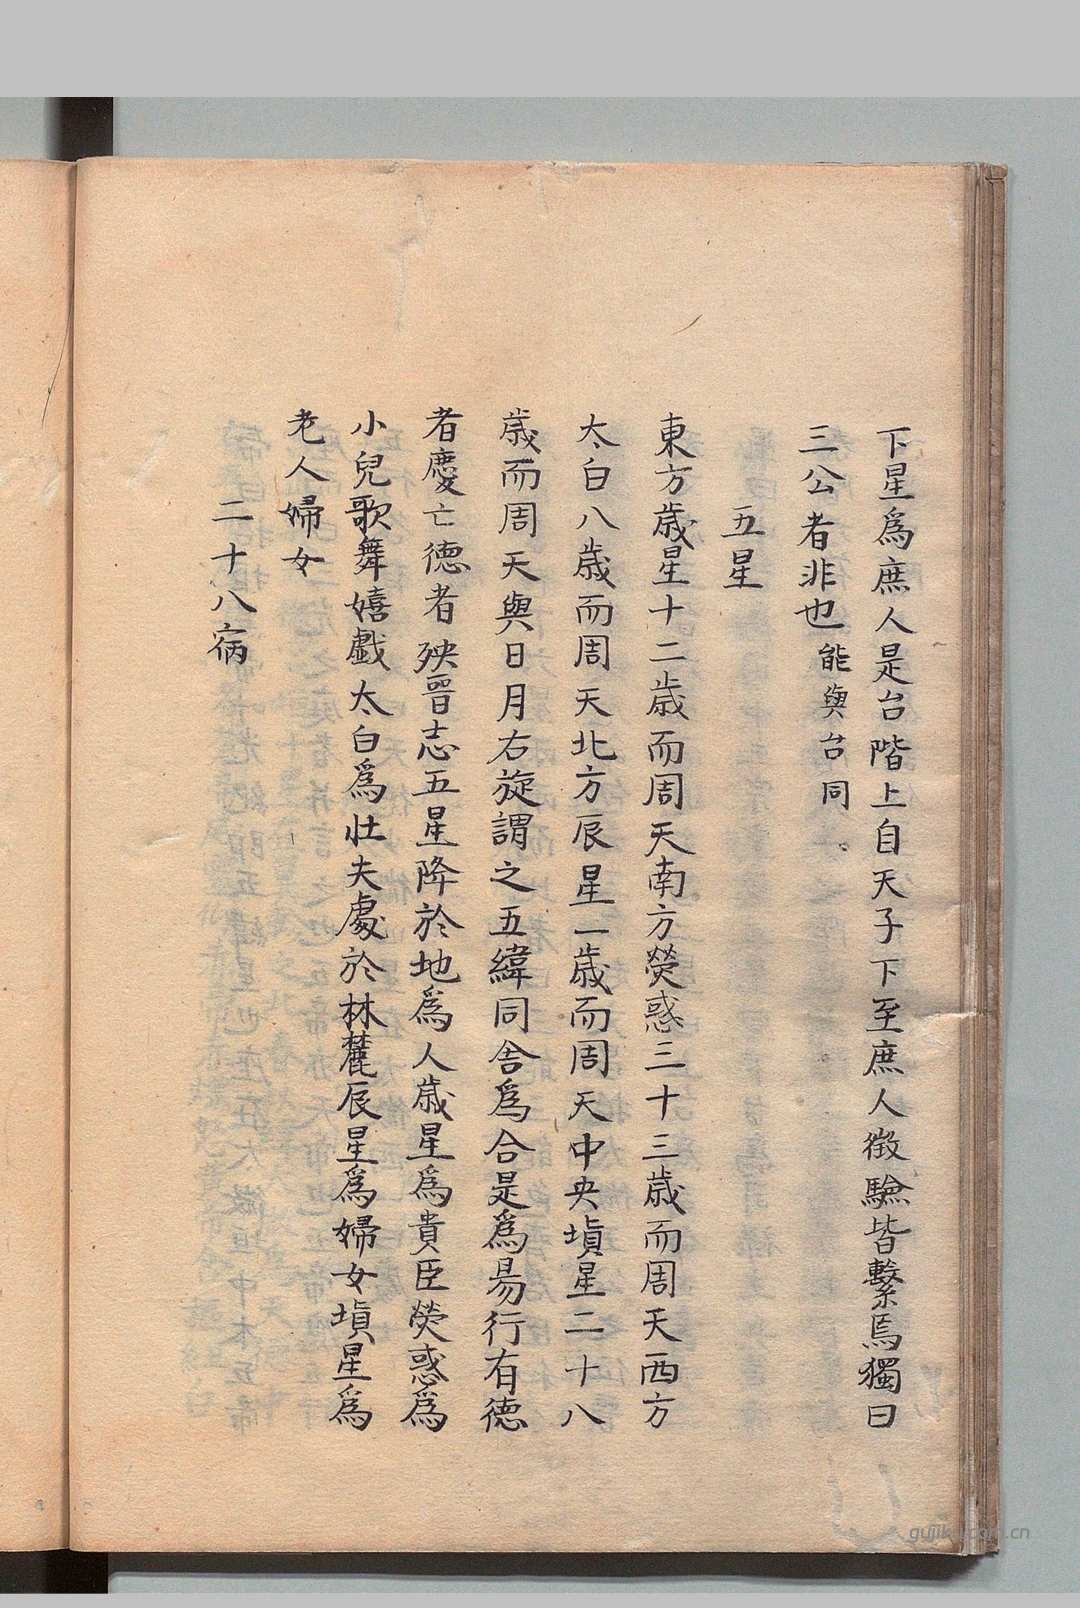 下星爲庶人是台階上自天子下至庶人徵驗皆繫焉獨曰
三公者非也能與台同
五星
東方歲星十二歲而周天南方熒惑三十三歲而周天西方
太白八歲而周天北方辰星一歲而周天中央塡星二十八
歲而周天與日月右旋謂之五緯同舎爲合是爲易行有德
者慶亡德者殃晉志五星降於地爲人歲星爲貴臣熒惑爲
小兒歌舞嬉戯太白爲壯夫處於林麓辰星爲婦女塡星爲
老人婦女
二十八㝛
gujiku.com.cn